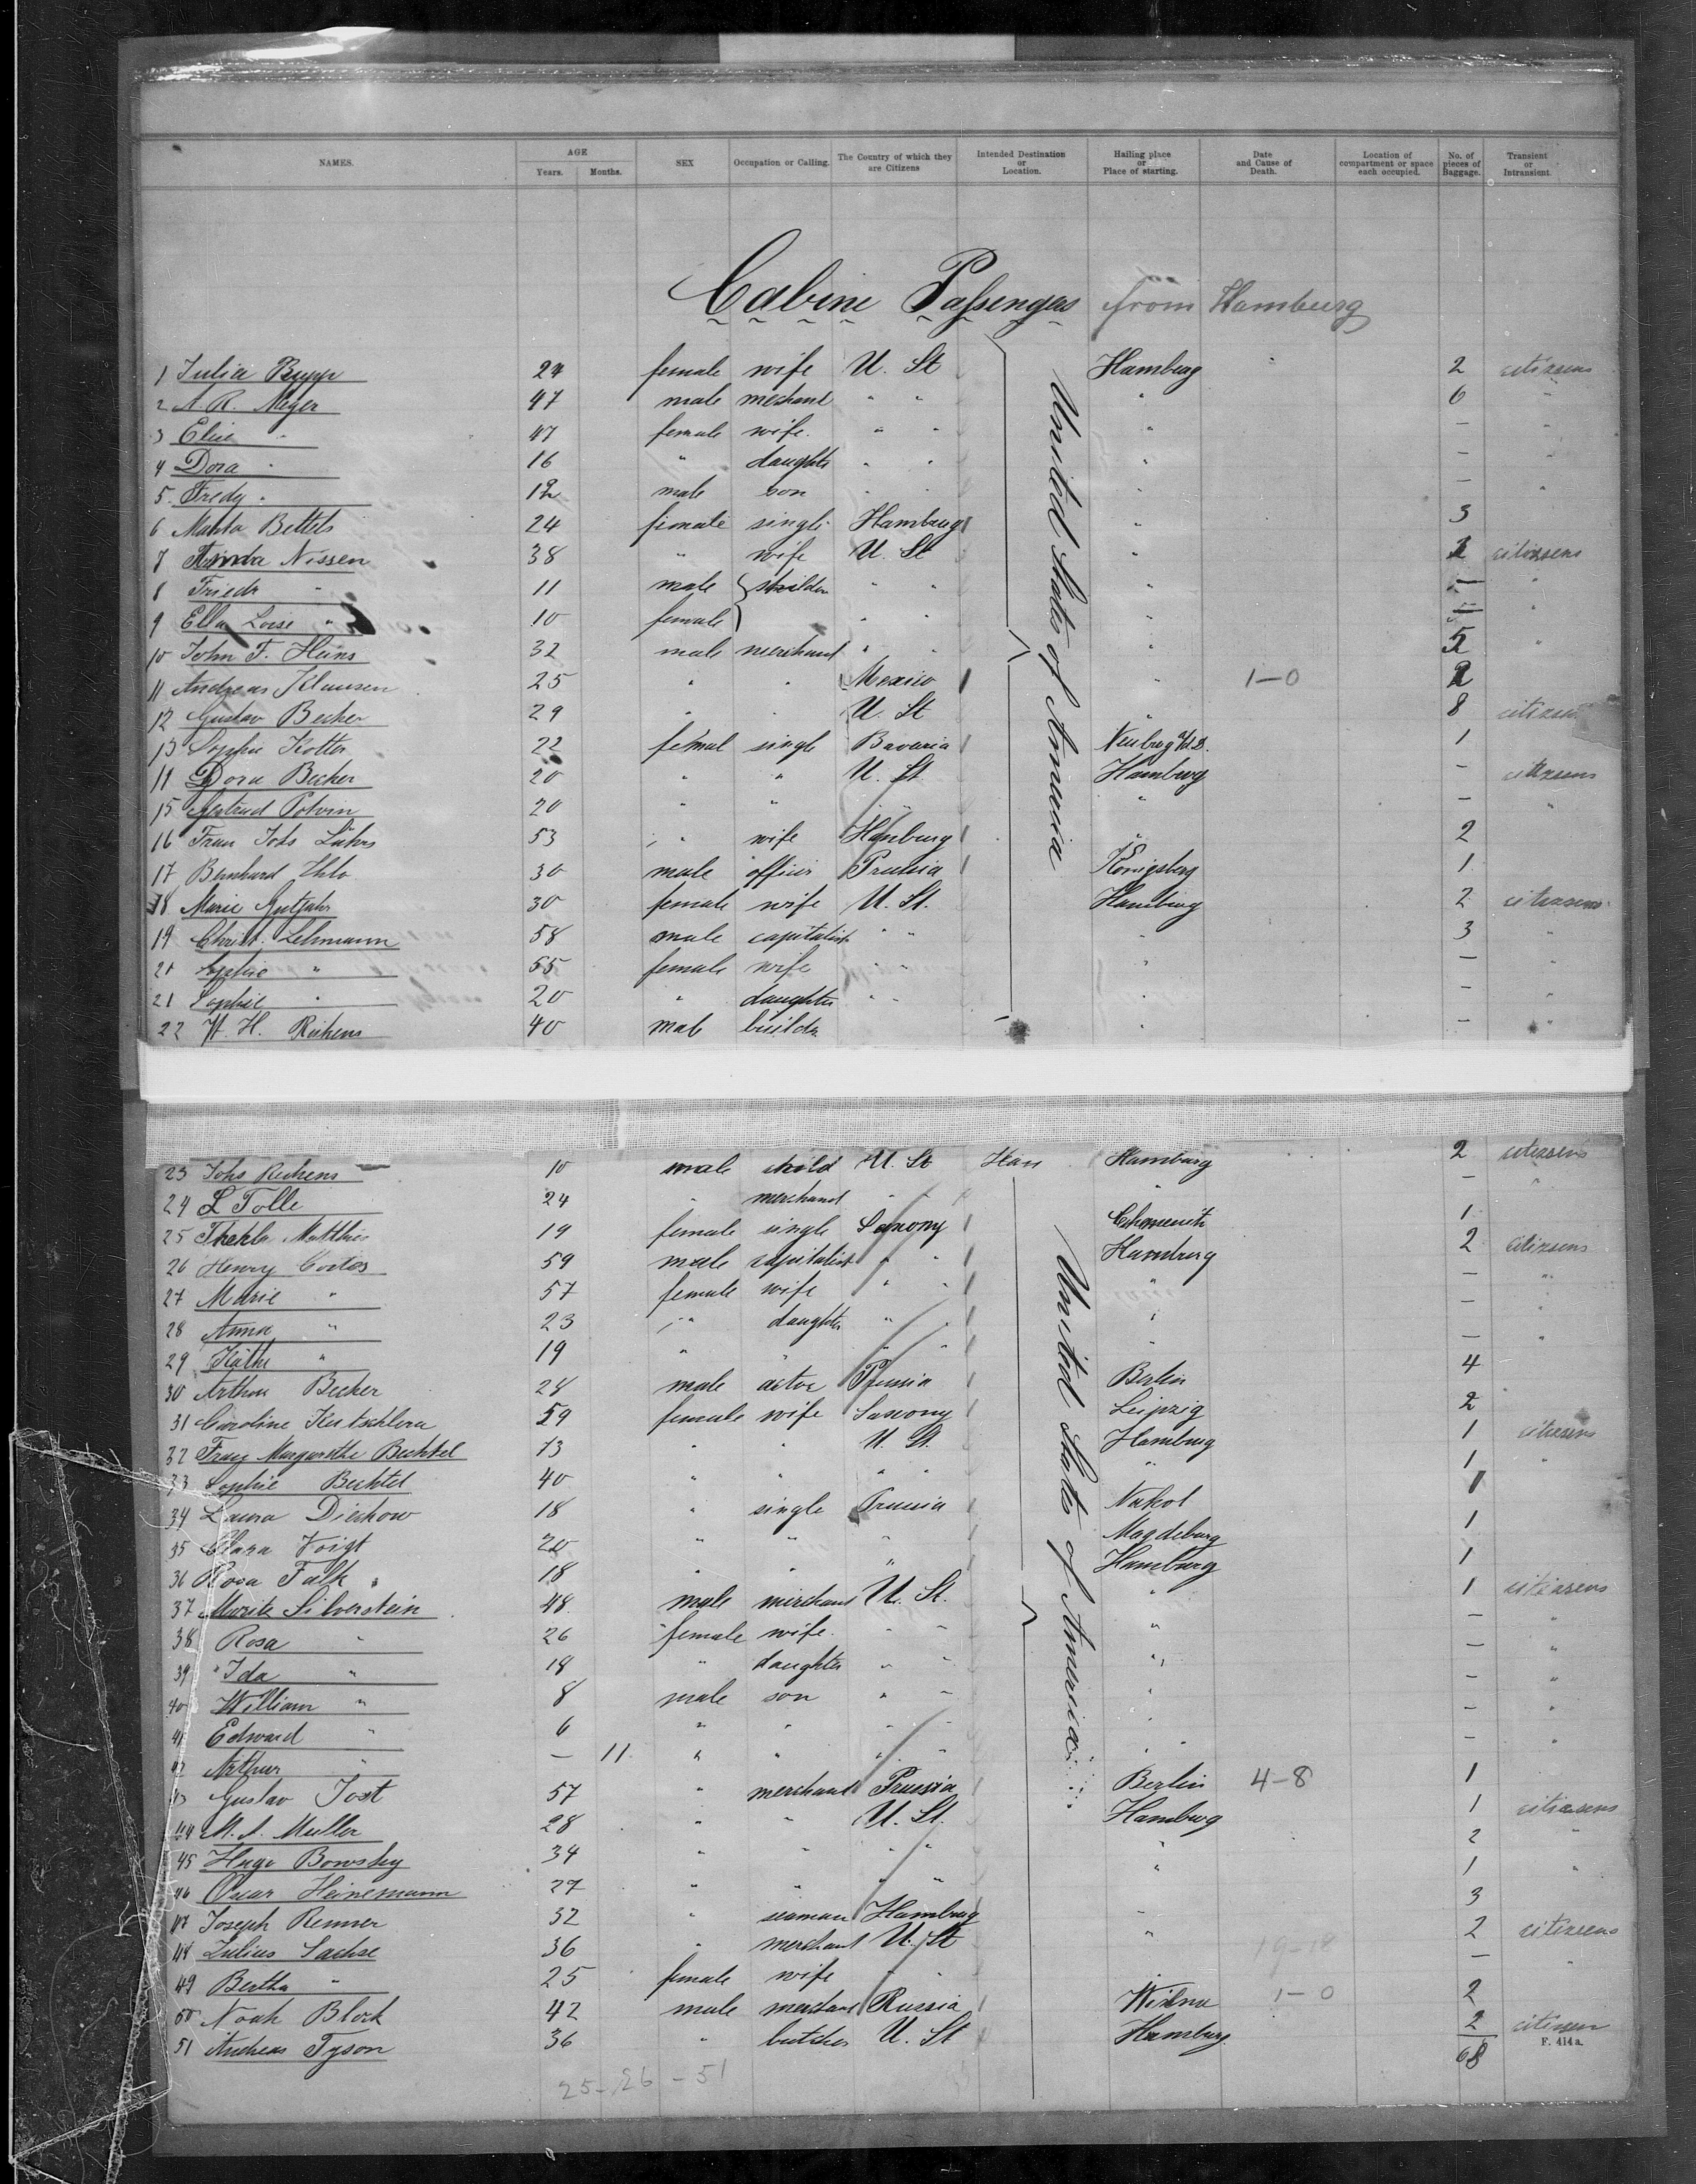 NAMES. AGE Years. Months. SEX Occupation or Calling. The Country of which they are Citizens Intended Destination or Location. Hailing place or Place of starting. Date and Cause of Death. Location of compartment or space each occupied. No. of pieces of Baggage. Transient or Intransient.
Cabine Passengers from Hamburg
United States of America
1 Julia 24 female wife U. St Hamburg 2 citizens
2 A. R. Meyer 47 male merchand " " " 6 "
3 Elise " 47 female wife " " " — "
4 Dora " 16 " daughter " " " — "
5 Fredy " 12 male son " " " — "
6 Bettels 24 female single Hamburg " 3
7 Nissen 38 " wife U. St " citizens
8 Friedr " 11 male " " " — "
9 Ella Loise " 10 female " " " — "
10 John F. Heins 32 male merchand " " " 5 "
11 Andreas Klausen 25 " " Mexico " 1-0
12 Gustav Becker 29 " " U. St " 8 citizens
13 Sophie Kotter 22 femal single Bavaria Neuburg a/d D. 1
14 Dora Becker 20 " " U. St Hamburg — citizens
15 Gertrud 20 " " " " — "
16 Frau Johs Lührs 53 " wife Hamburg " 2
17 Bernhard 30 male officer Prussia Königsberg 1
18 Marie Gutjahr 30 female wife U. St. Hamburg 2 citizens
19 Christ. Lehmann 58 male capitalist " " " 3 "
20 Sophie " 55 female wife " " " — "
21 Sophie " 20 " daughter " " " — "
22 H. Rickens 40 male builder " — "
23 Johs Rickens 10 male child U. St Ham Hamburg 2 citizens
United States of America
24 L Tolle 24 " merchand " " " — "
25 Thekla Matthies 19 female single Saxony Chemnitz 1
26 Henry Cordes 59 male capitalist " " Hamburg 2 citizens
27 Marie " 57 female wife " " " — "
28 Anna " 23 " daughter " " " — "
29 Käthe " 19 " " " " " — "
30 Arthur Becker 28 male actor Prussia Berlin 4
31 Caroline 59 female wife Saxony Leipzig 2
32 Margarethe Bechtel 13 " " U. St. Hamburg 1 citizens
33 Sophie Bechtel 40 " " " " " 1 "
34 Laura Dickow 18 " single Prussia Nakel 1
35 Clara Voigt 20 " " " Magdeburg 1
36 Rosa Falk 18 " " " Hamburg 1
37 Moritz Silverstein 48 male merchand U. St. " 1 citizens
38 Rosa " 26 female wife " " " — "
39 Ida " 18 " daughter " " " — "
40 William " 8 male son " " " — "
41 Edward " 6 " " " " " — "
42 Arthur " — 11 " " " " " — "
43 Gustav Jost 57 " merchand Prussia Berlin 4-8 1
44 M. A. Muller 28 " " U. St. Hamburg 1 citizens
45 Hugo Bowsky 34 " " " " " 2 "
46 Oscar Heinemann 27 " " " " " 1 "
47 Joseph Renner 32 " seaman Hamburg " 3
48 Julius Sachse 36 " merchant U. St " 19-18 2 citizens
49 Bertha " 25 female wife " " " — "
50 Noah Block 42 male merchand Russia Wilna 1-0 2
51 Andreas Tyson 36 " butcher U. St Hamburg. 2 citizen
F. 414 a.
68
25-26-51